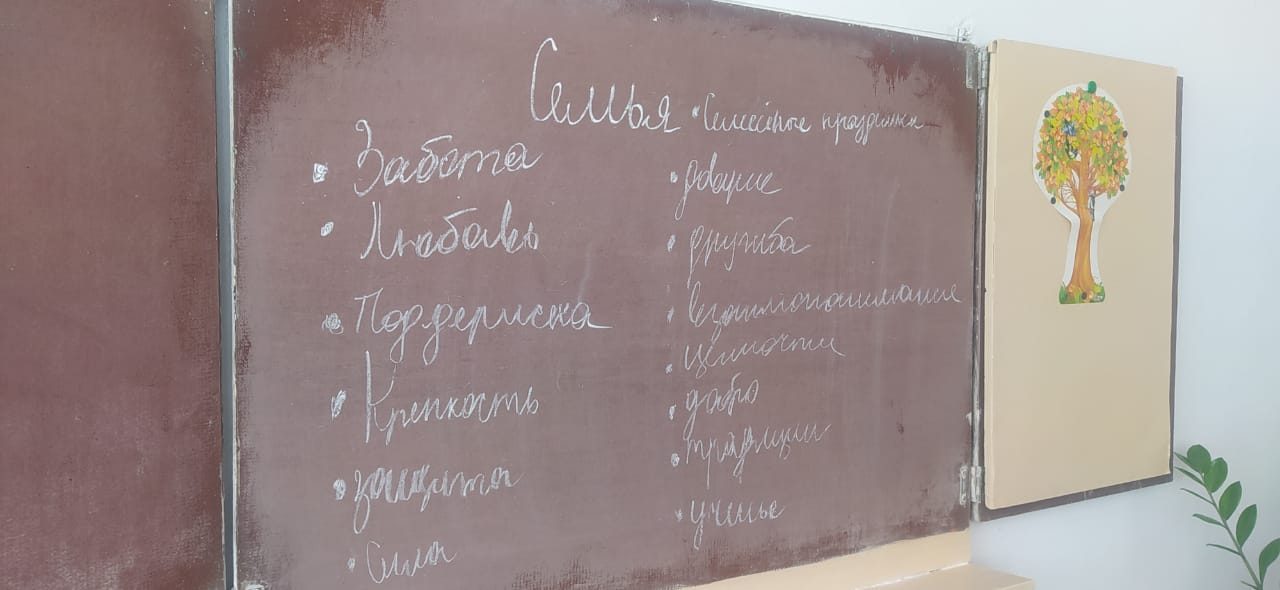 Семья
• Семейные праздники
• Забота
• Любовь
• Поддержка
• Крепкость
• защита
• Сила
• доверие
• дружба
• взаимопонимание
• ценности
• добро
• традиции
• ученье